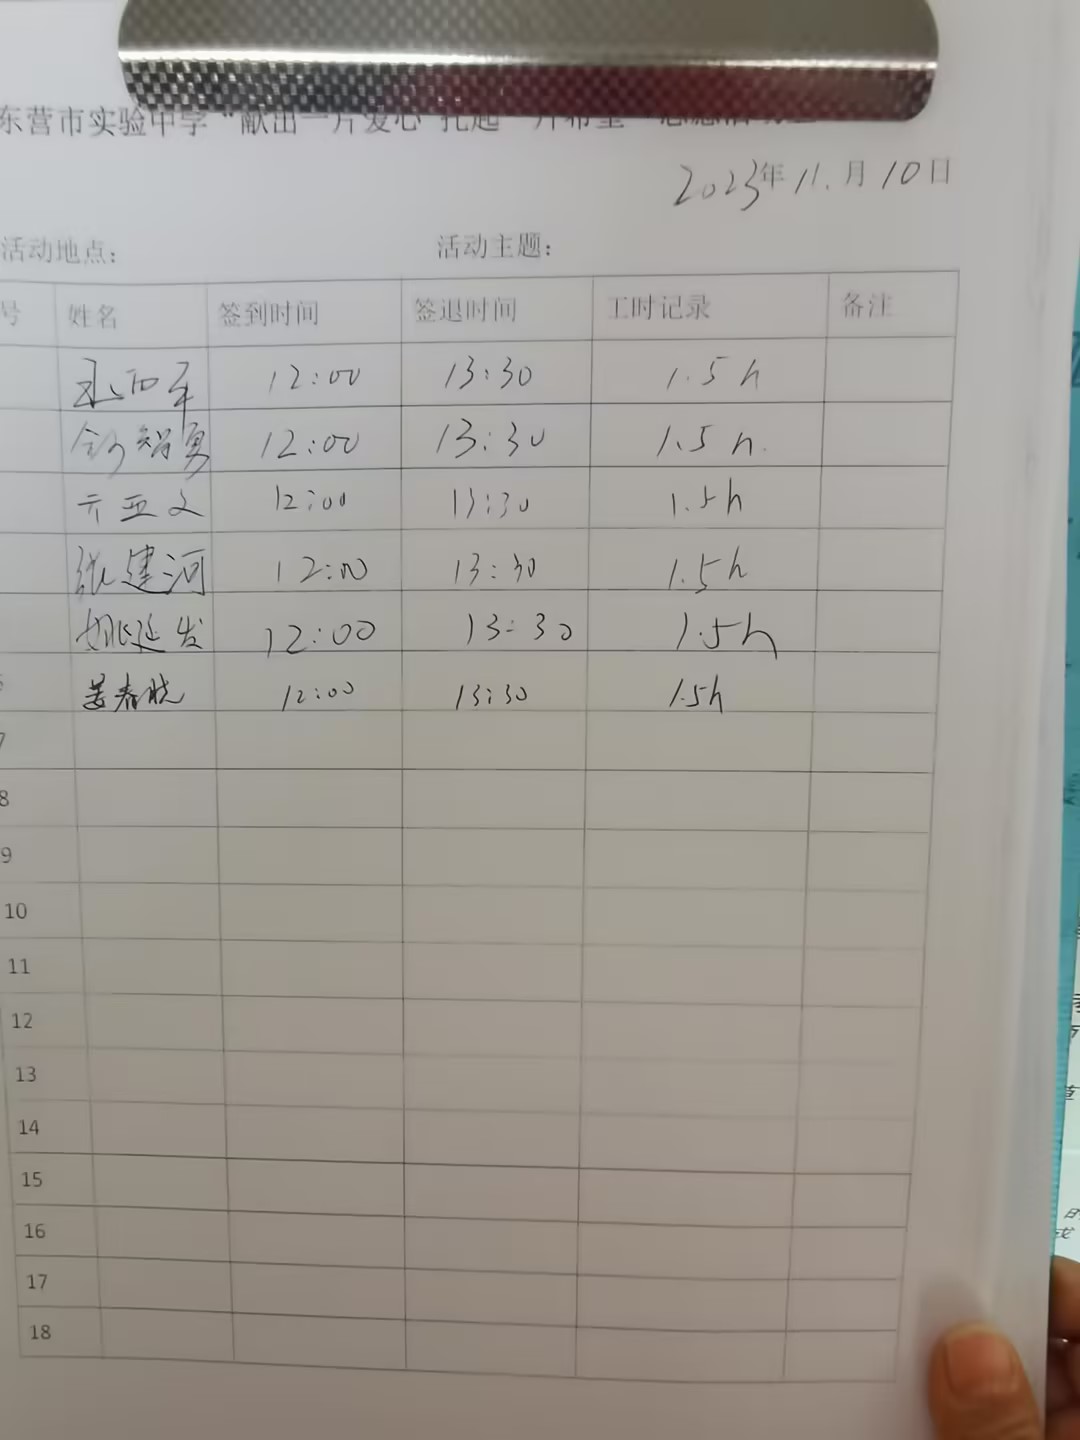 东营市实验中学“献出一片爱心 托起一片希望
2023年11.月10日
活动地点: 活动主题:
号 姓名 签到时间 签退时间 工时记录 备注
12:00 13:30 1.5h
舒智勇 12:00 13:30 1.5h.
亓亚文 12:00 13:30 1.5h
张建河 12:00 13:30 1.5h
姚延发 12:00 13:30 1.5h
姜春晓 12:00 13:30 1.5h
7
8
9
10
11
12
13
14
15
16
17
18